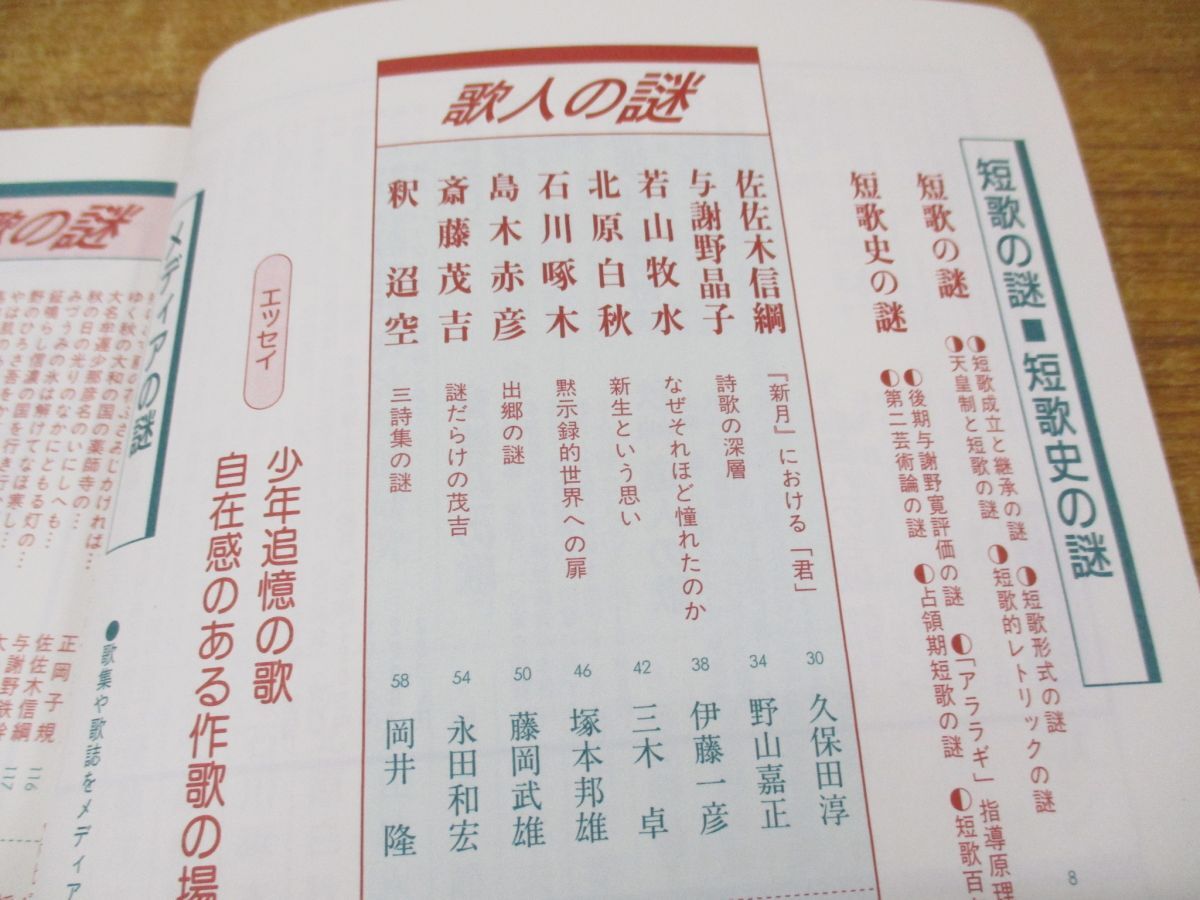 短歌の謎■短歌史の謎
短歌の謎
◐短歌成立と継承の謎 ◐短歌形式の謎
◐天皇制と短歌の謎 ◐短歌的レトリックの謎
短歌史の謎
◐後期与謝野寛評価の謎 ◐「アララギ」指導原理
◐第二芸術論の謎 ◐占領期短歌の謎 ◐短歌百
8
歌人の謎
佐佐木信綱 『新月』における「君」 30 久保田淳
与謝野晶子 詩歌の深層 34 野山嘉正
若山牧水 なぜそれほど憧れたのか 38 伊藤一彦
北原白秋 新生という思い 42 三木卓
石川啄木 黙示録的世界への扉 46 塚本邦雄
島木赤彦 出郷の謎 50 藤岡武雄
斎藤茂吉 謎だらけの茂吉 54 永田和宏
釈迢空 三詩集の謎 58 岡井隆
エッセイ
少年追憶の歌
自在感のある作歌の場
メディアの謎
●歌集や歌誌をメディア
の謎
ゆく秋の大和の国の
大名牟遅少那彦名のいにしへも…
秋の日の光りのなかにともる灯の…
みづうみの氷は解けてなほ寒し…
正岡子規 116
佐佐木信綱 117
与謝野鉄幹